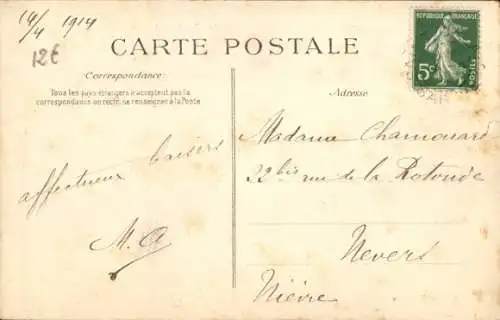 14/4 1914
12€
CARTE POSTALE
RÉPUBLIQUE FRANÇAISE
5c
POSTES
Correspondance:
Tous les pays étrangers n'acceptent pas la
correspondance au recto, se renseigner à la Poste
affectueux baisers
M. A
Adresse
Madame Chamouard
22 bis rue de la Rotonde
Nevers
Nièvre